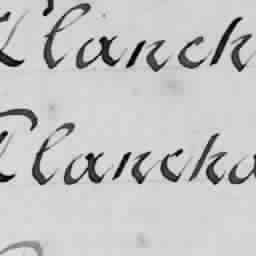 Planch
Plancha